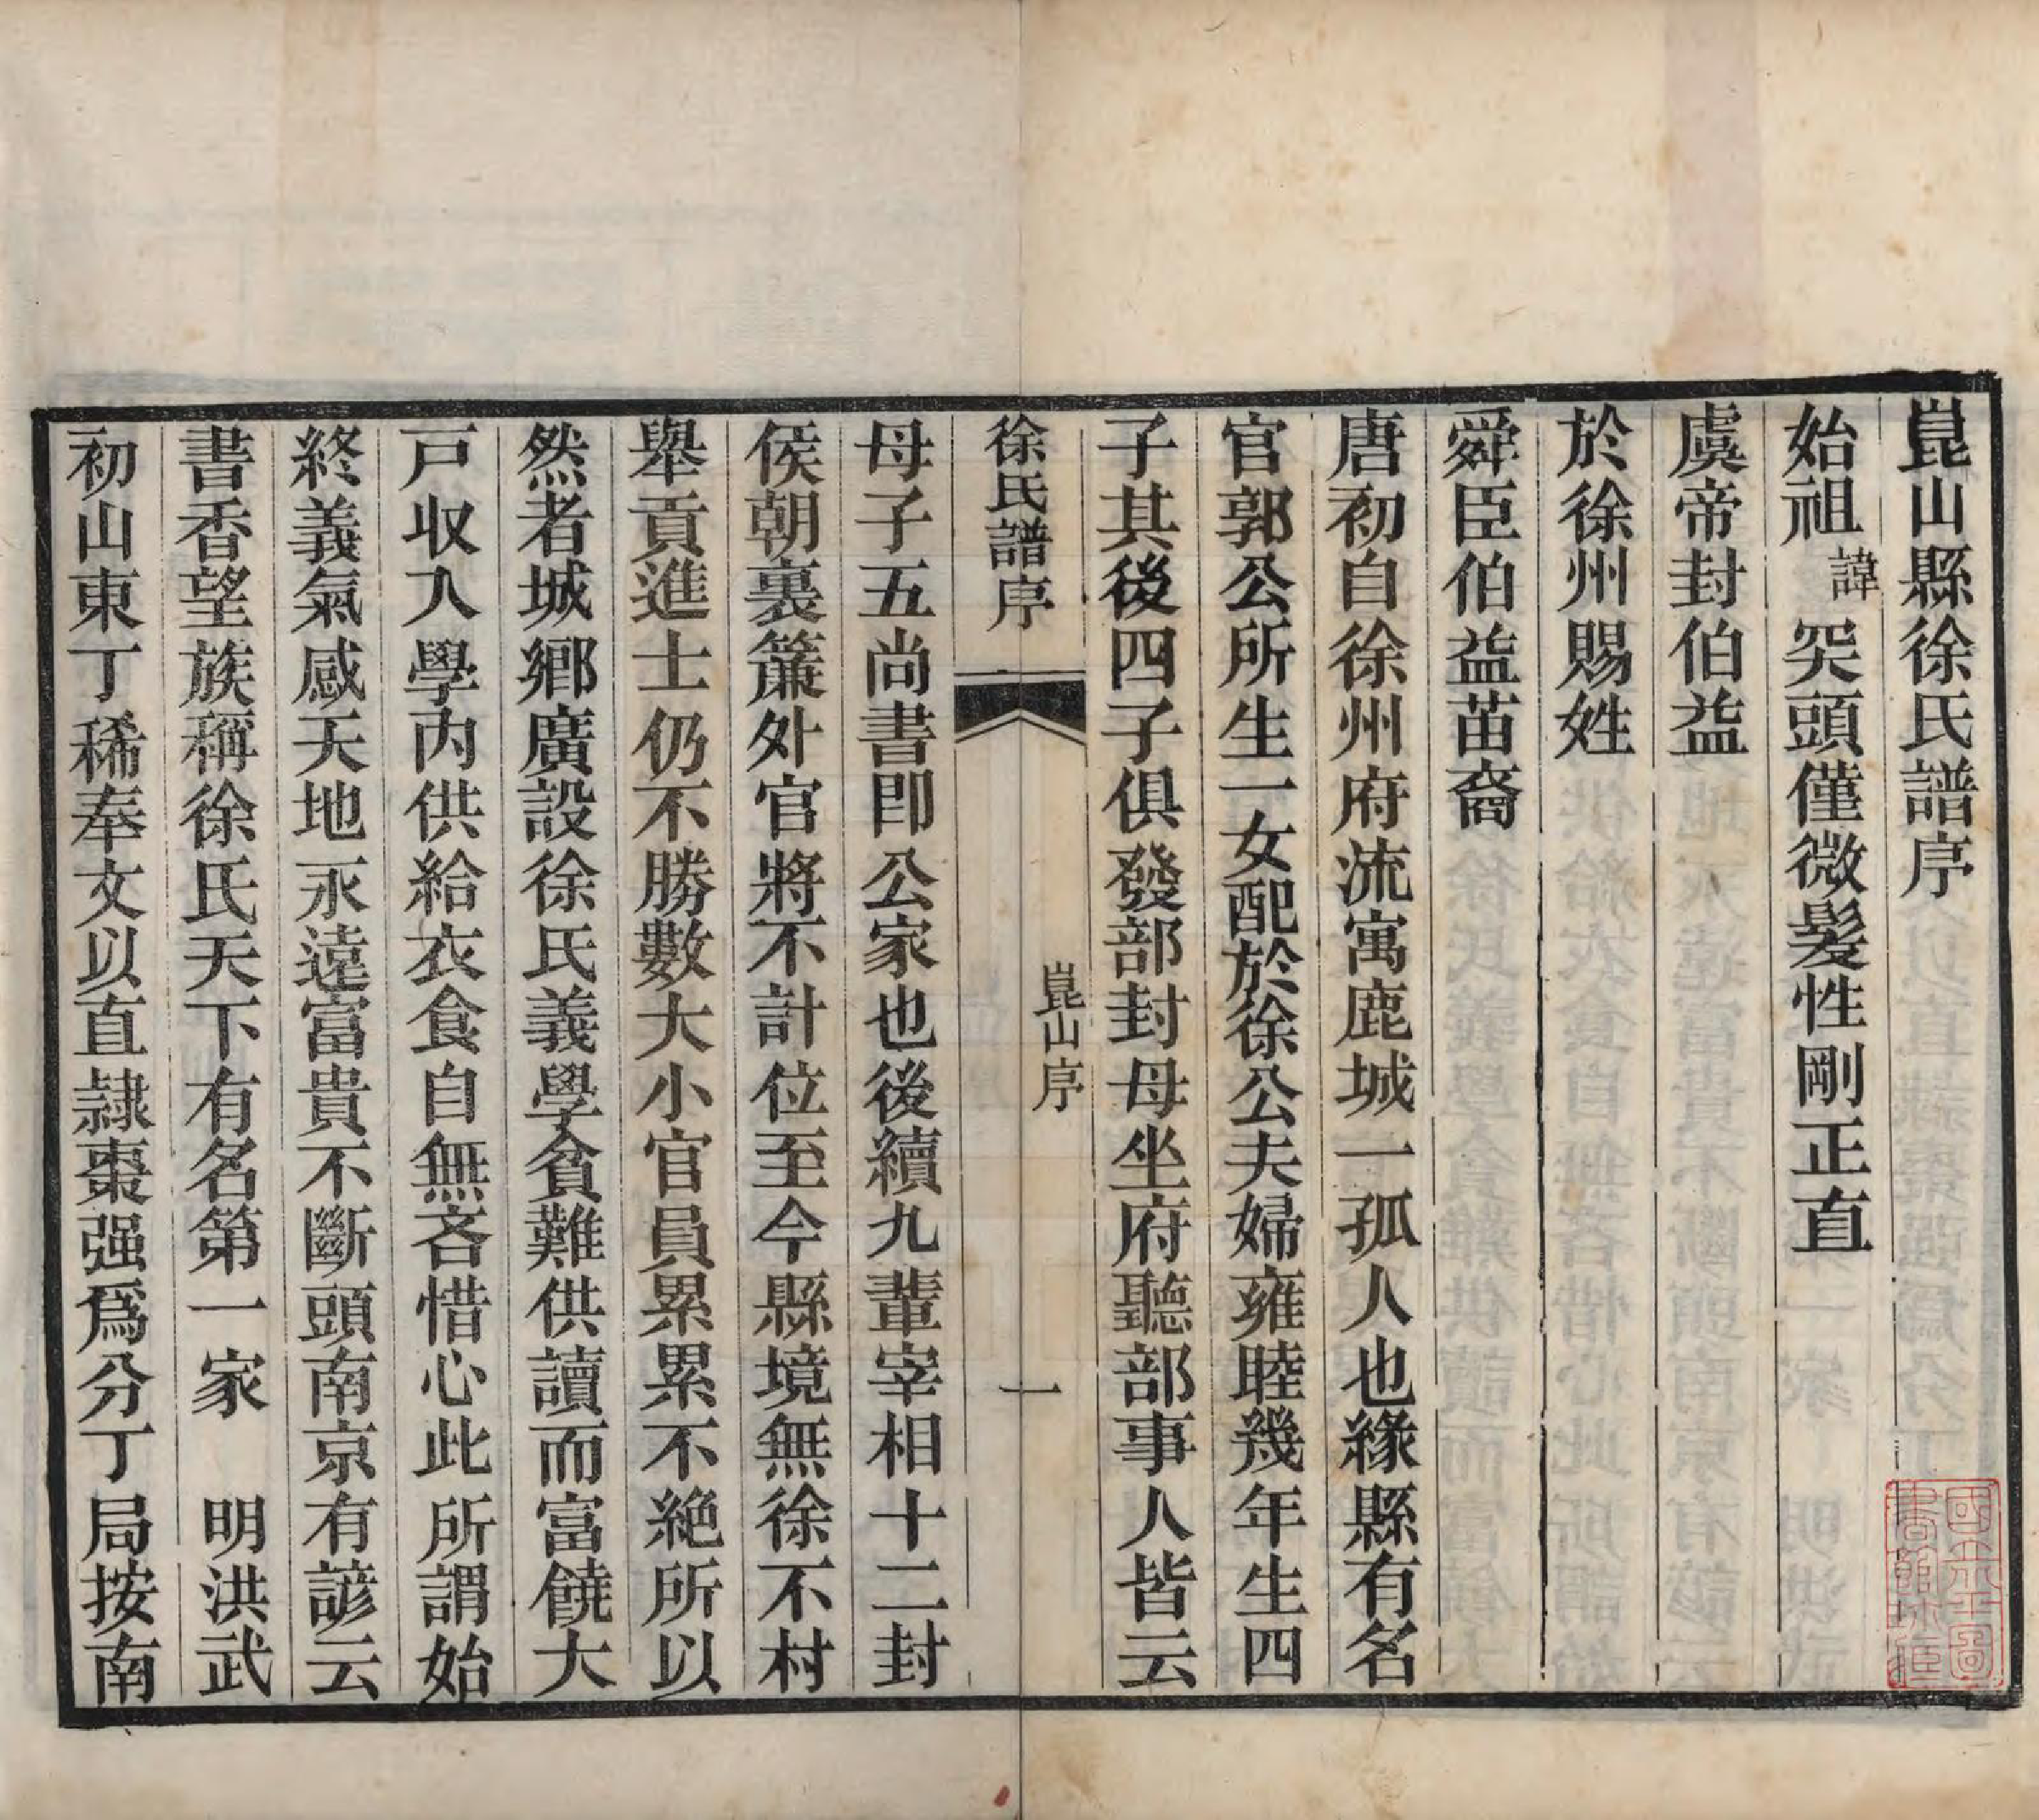 崑山縣徐氏譜序
始祖諱突頭僅微髮性剛正直
虞帝封伯益
於徐州賜姓
舜臣伯益苗裔
唐初自徐州府流寓鹿城一孤人也緣縣有名
官郭公所生一女配於徐公夫婦雍睦幾年生四
子其後四子俱發部封母坐府聽部事人皆云
徐氏譜序 崑山序 一
母子五尚書即公家也後續九輩宰相十二封
侯朝裏簾外官將不計位至今縣境無徐不村
舉貢進士仍不勝數大小官員累累不絕所以
然者城鄉廣設徐氏義學貧難供讀而富饒大
戸收入學內供給衣食自無吝惜心此所謂始
終義氣感天地永遠富貴不斷頭南京有諺云
書香望族稱徐氏天下有名第一家 明洪武
初山東丁稀奉文以直隸棗强爲分丁局按南